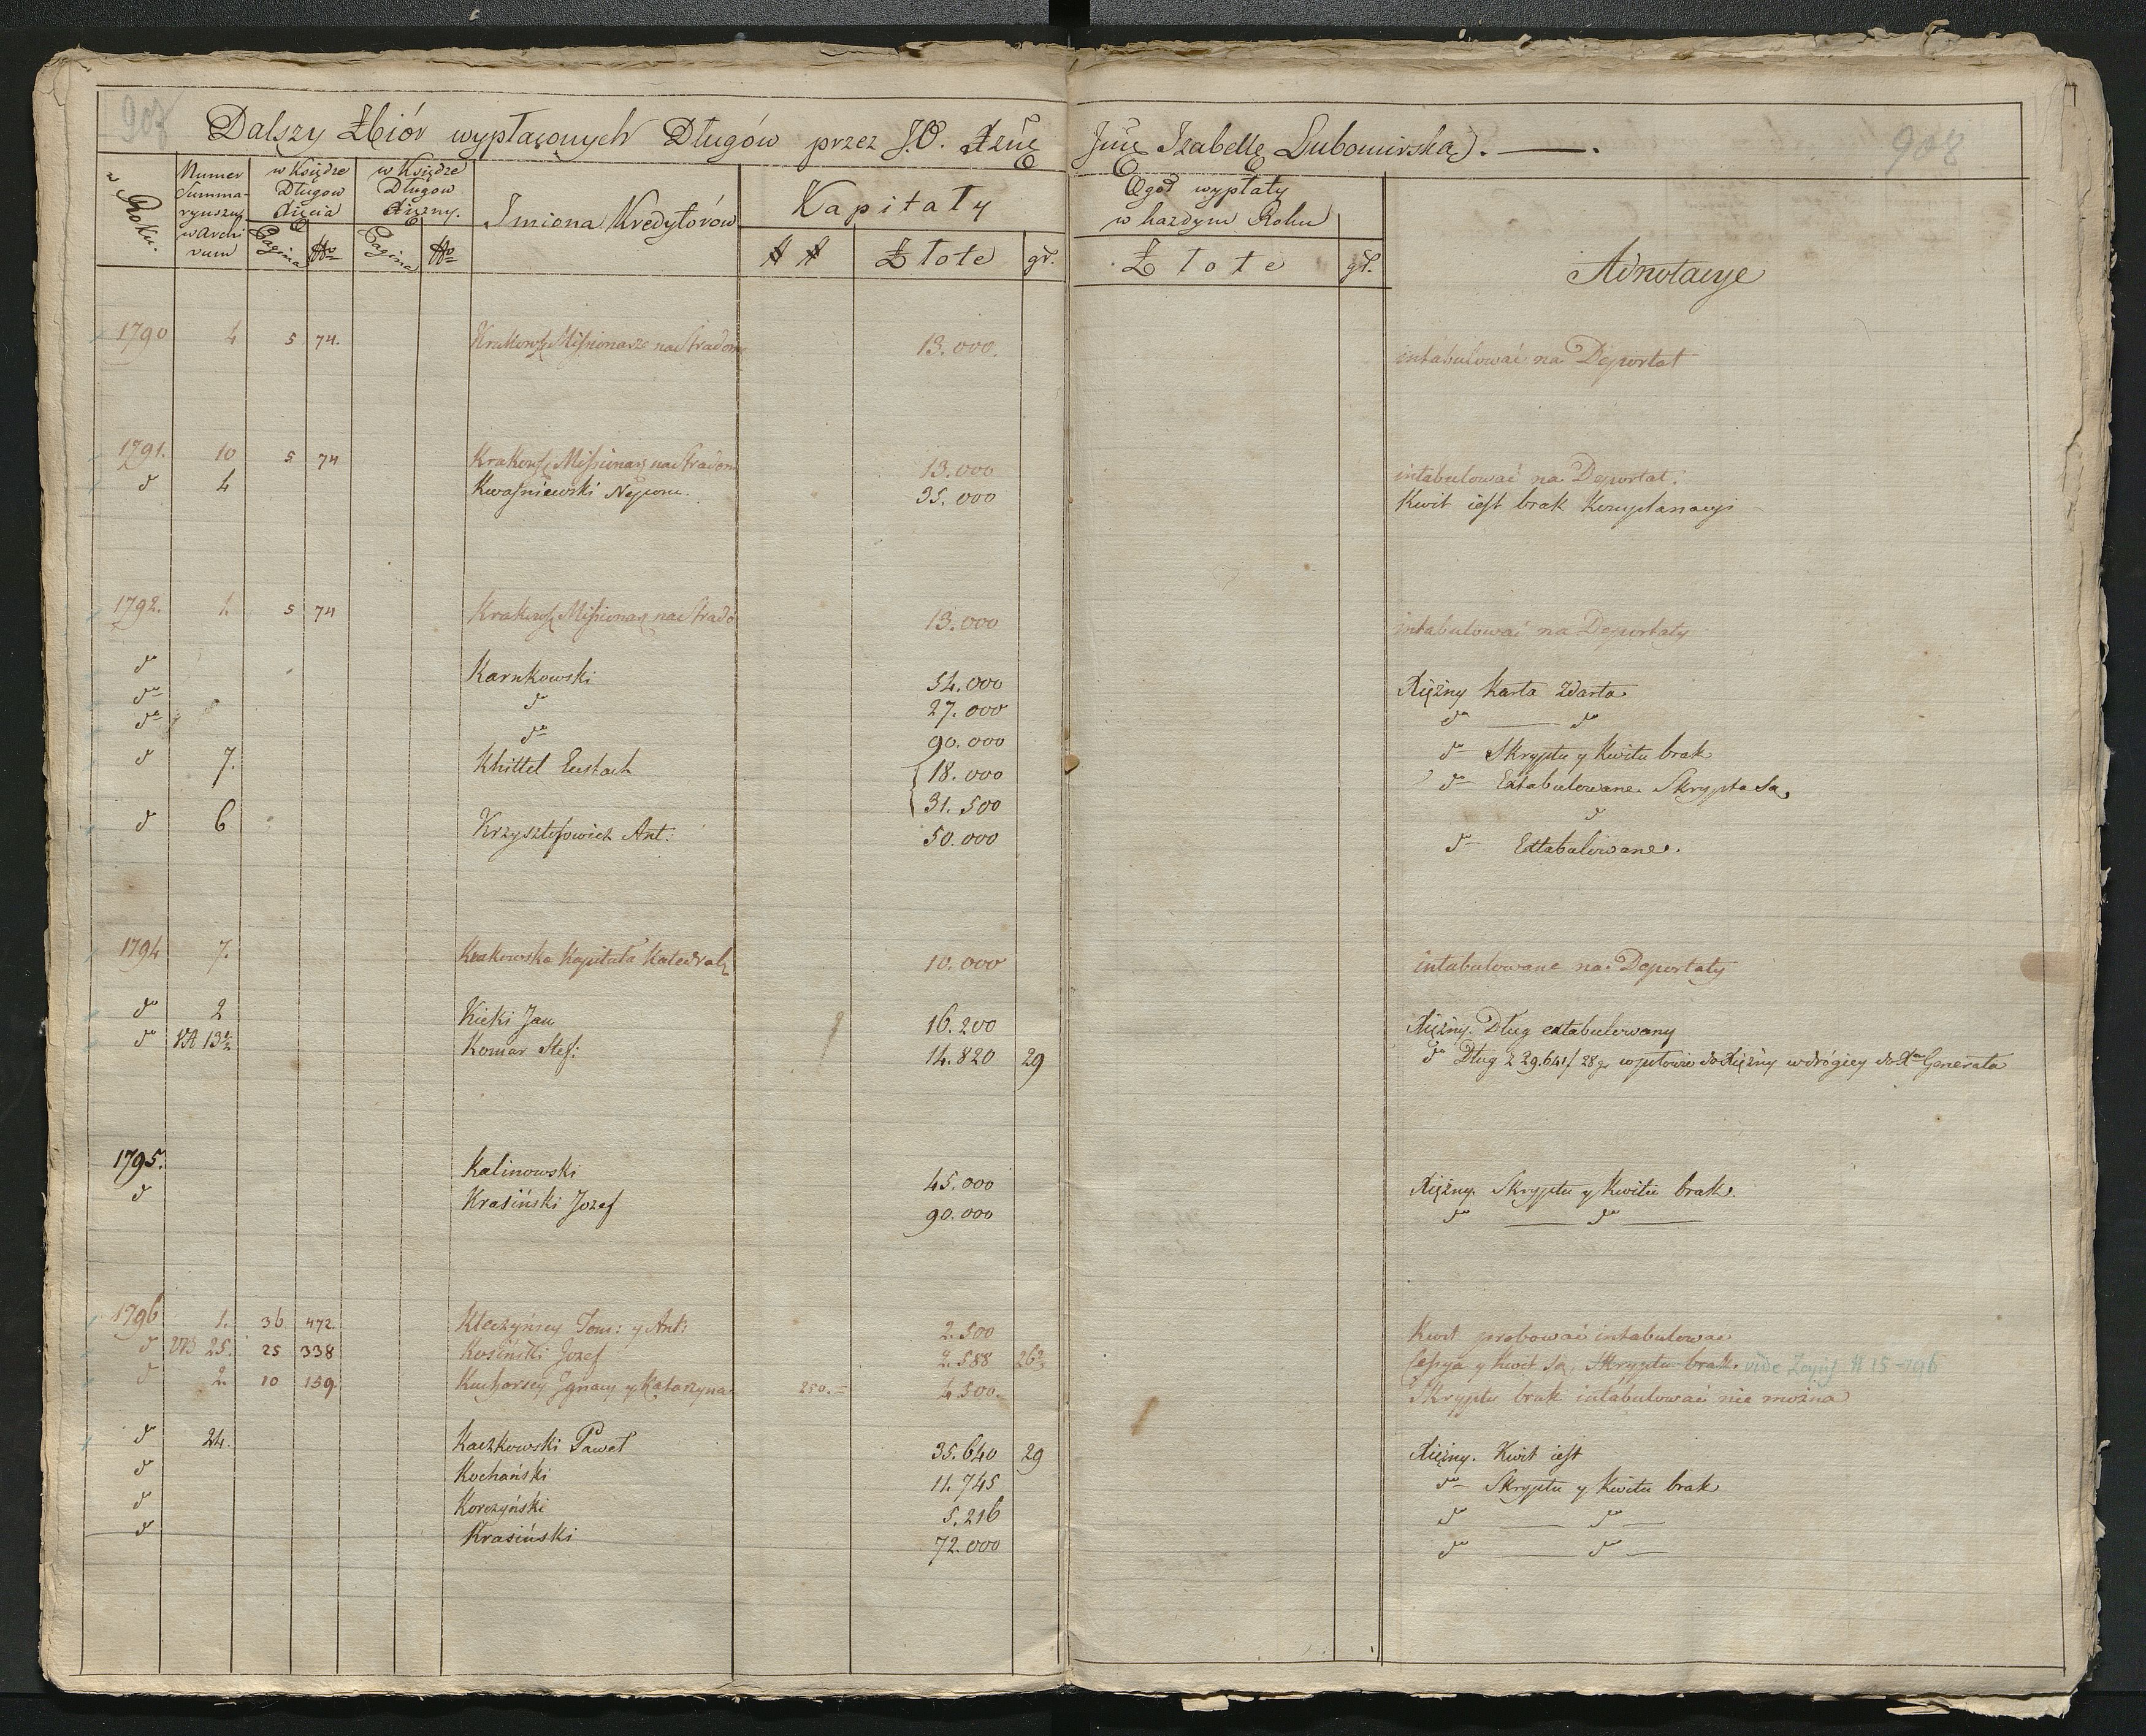 907
908
Dalszy Zbiór wypłaconych Długów przez J.O. Xżnę Jmć Izabellę Lubomirską.
z Roku.
Numer Summaryuszu w Archivum
w Księdze Długow Xięcia
Pagina Nro
w Księdze Długow Xiężny.
Pagina Nro
Imiona Kredytorów
Kapitały
# #
Złote
gr.
Ogoł wypłaty w każdym Roku
Złote
gr.
Adnotacye
1790 4 5 74. Krakows. Missionarze na Stradom 13.000. intabulować na Deportat
1791. 10 5 74 Krakows. Missionarz na Stradom 13.000 intabulować na Deportat.
do 4 Kwaśniewski Nepom. 35.000 Kwit iest brak Komplanacyi
1792. 1. 5 74 Krakows. Missionarz na Strado 13.000 intabulować na Deportaty
do Karnkowski 54.000 Xiężny Karta zdarta
do do 27.000 do do
do do 90.000 do Skryptu y Kwitu brak
do 7. Khittel Eustach 18.000 do Extabulowane Skrypta są
31.500 do
do 6 Krzysztofowicz Ant: 50.000 do Extabulowane.
1794 7. Krakowska Kapituła Katedral 10.000 intabulowane na Deportaty
do 2 Kicki Jan 16.200 Xiężny. Dług extabulowany
do 13 1/2 Komar Stef: 14.820 29 do Dług z 29.641 f 28 gr wpołowie do Xiężny wdrógiey do Xcia Generała
1795. Kalinowski 45.000 Xiężny. Skryptu y Kwitu brak.
do Krasiński Jozef 90.000 do do
1796 1. 36 472. Kleczyńscy Tom: y Ant: 2.500 Kwit probować intabulować
do 25. 25 338 Kosiński Jozef 2.588 26 2/3 Cessya y Kwit są, Skryptu brak. vide # 15 - 796
do 2. 10 159. Kucharscy Ignacy y Katarzyna 250.= 4.500. Skryptu brak intabulować nie można
do 24. Kaczkowski Paweł 35.640 29 Xiężny. Kwit iest
do Kochański 11.745 do Skryptu y Kwitu brak
do Korczyński 5.216 do do
do Krasiński 72.000 do do